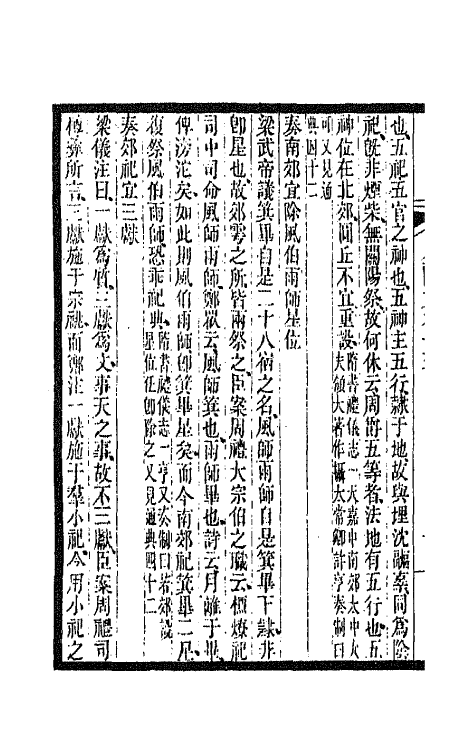 也五祀五官之神也五神主五行隷于地故與埋沈疈辜同爲陰
祀旣非煙柴無關陽祭故何休云周爵五等者法地有五行也五
神位在北郊圜丘不宜重設隋書禮儀志一大嘉中南郊太中大
夫領大著作攝太常卿許亨奏制曰
可又見通
典四十二
奏南郊宜除風伯雨師星位
梁武帝議箕畢自是二十八宿之名風師雨師自是箕畢下隷非
卽星也故郊雩之所皆兩祭之臣案周禮大宗伯之職云槱燎祀
司中司命風師雨師鄭衆云風師箕也雨師畢也詩云月離于畢
俾滂沱矣如此則風伯雨師卽箕畢星矣而今南郊祀箕畢二星
復祭風伯雨師恐乖祀典隋書禮儀志一亨又奏制曰若郊設
星位任卽除之又見通典四十二
奏郊祀宜三獻
梁儀注曰一獻爲質三獻爲文事天之事故不三獻臣案周禮司
樽彝所言三獻施于宗祧而鄭注一獻施于羣小祀今用小祀之